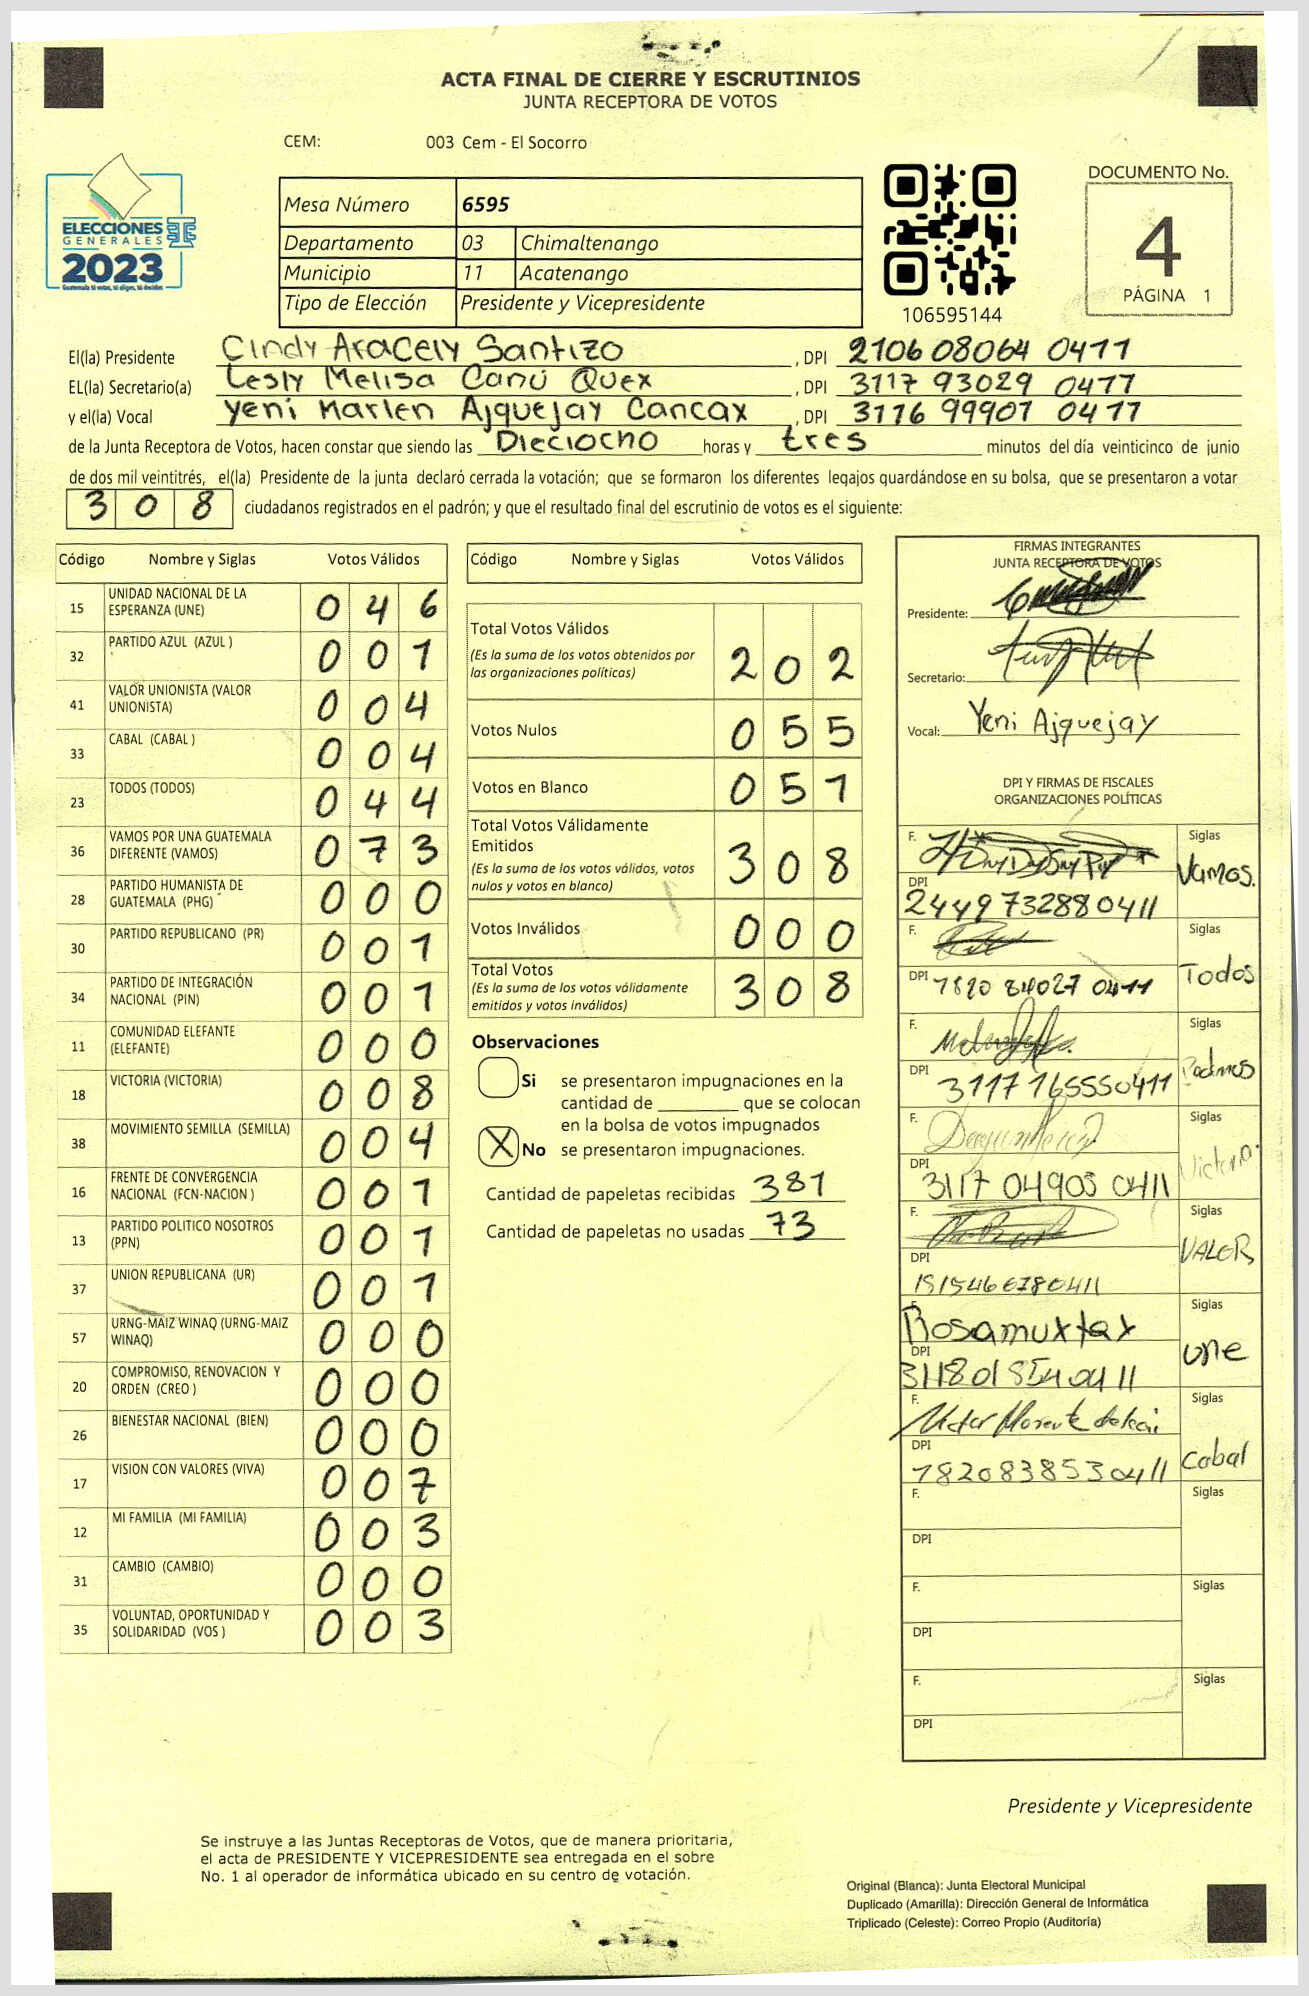 ACTA FINAL DE CIERRE Y ESCRUTINIOS
JUNTA RECEPTORA DE VOTOS
CEM: 003 Cem - El Socorro
ELECCIONES
GENERALES
2023
Guatemala tú votas, tú eliges, tú decides
Mesa Número 6595
Departamento 03 Chimaltenango
Municipio 11 Acatenango
Tipo de Elección Presidente y Vicepresidente
106595144
DOCUMENTO No.
4
PÁGINA 1
El(la) Presidente Cindy Aracely Santizo , DPI 2106 08064 0411
EL(la) Secretario(a) Lesly Melisa Canú Quex , DPI 3117 93029 0411
y el(la) Vocal Yeni Marlen Ajquejay Cancax , DPI 3116 99901 0411
de la Junta Receptora de Votos, hacen constar que siendo las Dieciocho horas y tres minutos del día veinticinco de junio
de dos mil veintitrés, el(la) Presidente de la junta declaró cerrada la votación; que se formaron los diferentes legajos guardándose en su bolsa, que se presentaron a votar
308 ciudadanos registrados en el padrón; y que el resultado final del escrutinio de votos es el siguiente:
Código Nombre y Siglas Votos Válidos
15 UNIDAD NACIONAL DE LA ESPERANZA (UNE) 046
32 PARTIDO AZUL (AZUL ) 001
41 VALOR UNIONISTA (VALOR UNIONISTA) 004
33 CABAL (CABAL ) 004
23 TODOS (TODOS) 044
36 VAMOS POR UNA GUATEMALA DIFERENTE (VAMOS) 073
28 PARTIDO HUMANISTA DE GUATEMALA (PHG) 000
30 PARTIDO REPUBLICANO (PR) 001
34 PARTIDO DE INTEGRACIÓN NACIONAL (PIN) 001
11 COMUNIDAD ELEFANTE (ELEFANTE) 000
18 VICTORIA (VICTORIA) 008
38 MOVIMIENTO SEMILLA (SEMILLA) 004
16 FRENTE DE CONVERGENCIA NACIONAL (FCN-NACION ) 001
13 PARTIDO POLITICO NOSOTROS (PPN) 001
37 UNION REPUBLICANA (UR) 001
57 URNG-MAIZ WINAQ (URNG-MAIZ WINAQ) 000
20 COMPROMISO, RENOVACION Y ORDEN (CREO ) 000
26 BIENESTAR NACIONAL (BIEN) 000
17 VISION CON VALORES (VIVA) 007
12 MI FAMILIA (MI FAMILIA) 003
31 CAMBIO (CAMBIO) 000
35 VOLUNTAD, OPORTUNIDAD Y SOLIDARIDAD (VOS ) 003
Código Nombre y Siglas Votos Válidos
Total Votos Válidos 202
(Es la suma de los votos obtenidos por
las organizaciones políticas)
Votos Nulos 055
Votos en Blanco 051
Total Votos Válidamente
Emitidos 308
(Es la suma de los votos válidos, votos
nulos y votos en blanco)
Votos Inválidos 000
Total Votos 308
(Es la suma de los votos válidamente
emitidos y votos inválidos)
Observaciones
Si se presentaron impugnaciones en la
cantidad de ________ que se colocan
en la bolsa de votos impugnados
X No se presentaron impugnaciones.
Cantidad de papeletas recibidas 381
Cantidad de papeletas no usadas 73
FIRMAS INTEGRANTES
JUNTA RECEPTORA DE VOTOS
Presidente:
Secretario:
Vocal: Yeni Ajquejay
DPI Y FIRMAS DE FISCALES
ORGANIZACIONES POLÍTICAS
F. Siglas Vamos.
DPI 2449 73288 0411
F. Siglas Todos
DPI 1820 84027 0411
F. Siglas Podemos
DPI 3117 16555 0411
F. Siglas Victoria
DPI 3117 04905 0411
F. Siglas VALOR
DPI
F. Rosa muxtax Siglas une
DPI
F. Siglas Cabal
DPI 1820838530411
F. Siglas
DPI
F. Siglas
DPI
F. Siglas
DPI
Presidente y Vicepresidente
Se instruye a las Juntas Receptoras de Votos, que de manera prioritaria,
el acta de PRESIDENTE Y VICEPRESIDENTE sea entregada en el sobre
No. 1 al operador de informática ubicado en su centro de votación.
Original (Blanca): Junta Electoral Municipal
Duplicado (Amarilla): Dirección General de Informática
Triplicado (Celeste): Correo Propio (Auditoría)